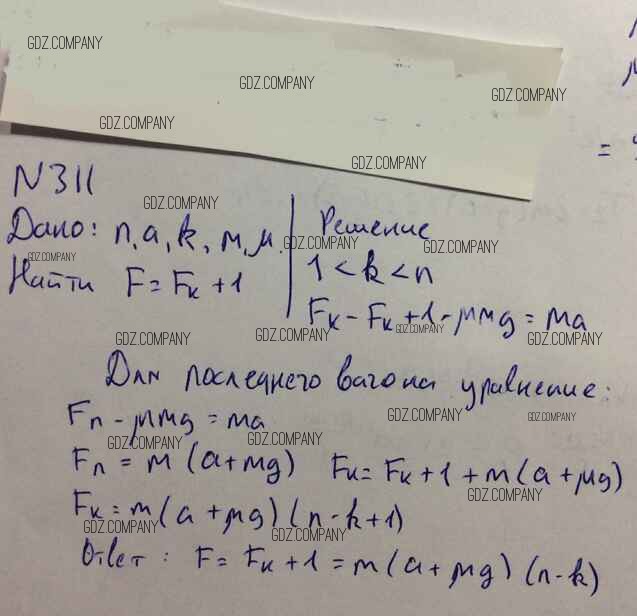 GDZ.COMPANY
GDZ.COMPANY
GDZ.COMPANY
GDZ.COMPANY
GDZ.COMPANY
= 
N311
GDZ.COMPANY
Дано: n, a, k, m, μ. | Решение
GDZ.COMPANY GDZ.COMPANY GDZ.COMPANY
Найти F = Fк + 1 | 1 < k < n
Fк - Fк + 1 - μmg = ma
GDZ.COMPANY GDZ.COMPANY GDZ.COMPANY GDZ.COMPANY
Для последнего вагона уравнение:
Fn - μmg = ma
GDZ.COMPANY GDZ.COMPANY
GDZ.COMPANY GDZ.COMPANY
Fn = m (a+mg) Fк = Fк + 1 + m(a + μg)
GDZ.COMPANY
Fк = m(a + μg) (n-k+1)
GDZ.COMPANY GDZ.COMPANY
Ответ: F = Fк + 1 = m(a + μg) (n-k)